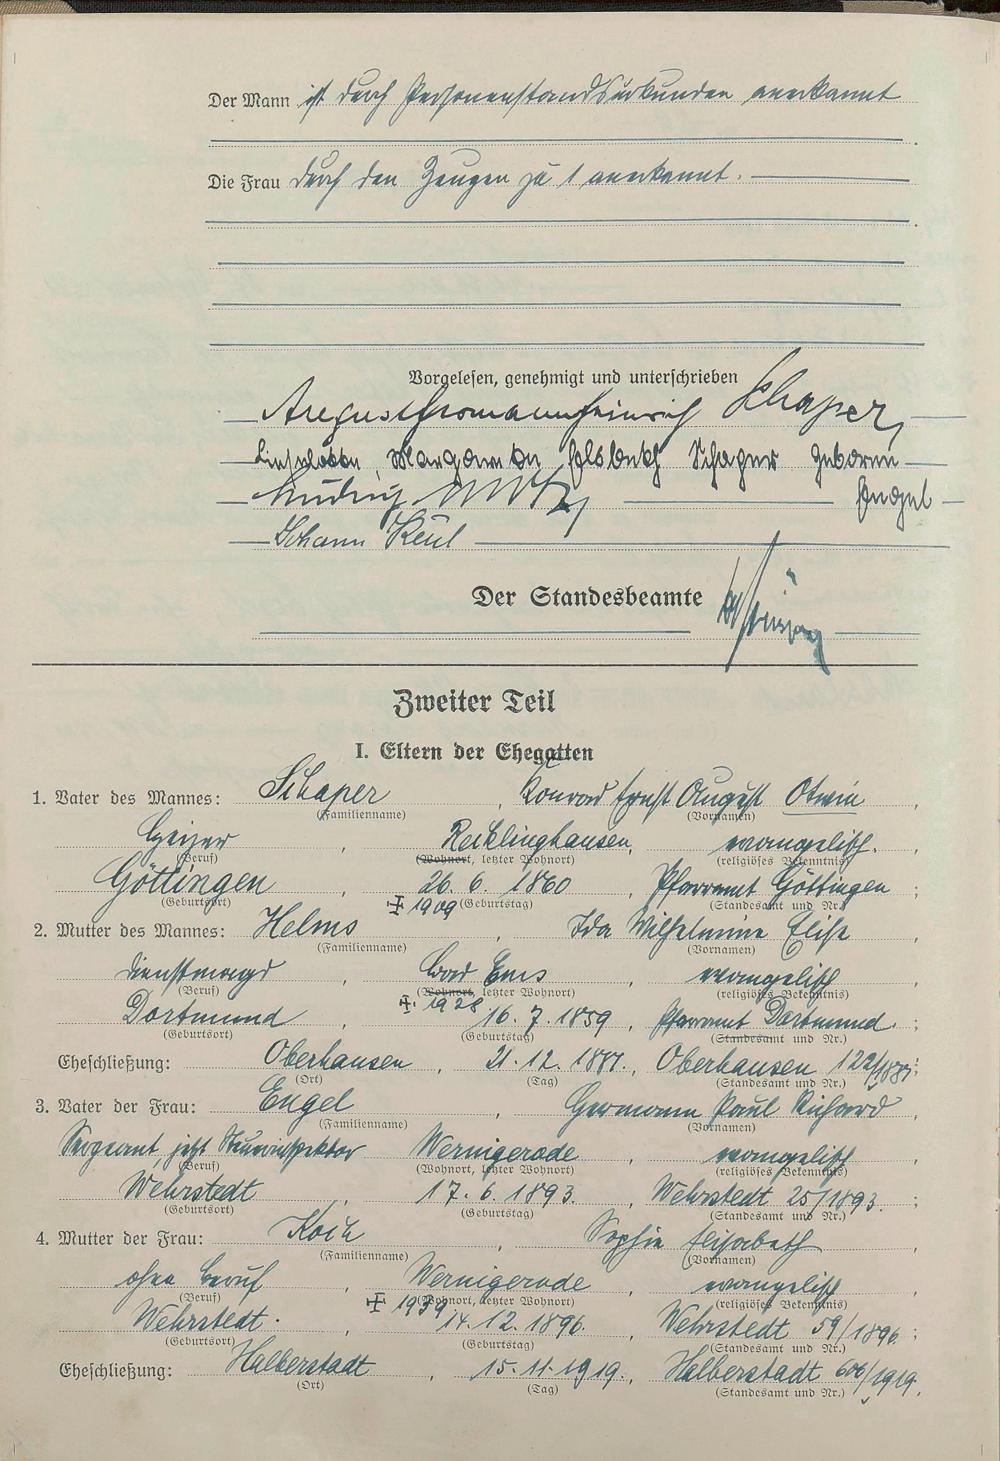 Der Mann ist durch Personenstandsurkunden anerkannt
Die Frau durch den Zeugen zu 1 anerkannt.
Vorgelesen, genehmigt und unterschrieben
August Hermann Heinrich Schaper,
Lieselotte, Margarete Elsbeth Schaper geborene
Ludwig Engel
Johann Keul
Der Standesbeamte
Zweiter Teil
I. Eltern der Ehegatten
1. Vater des Mannes: Schaper, Konrad Ernst August Otwin,
(Familienname) (Vornamen)
Heizer, Recklinghausen, evangelisch.
(Beruf) (Wohnort, letzter Wohnort) (religiöses Bekenntnis)
Göttingen, 26. 6. 1860, Pfarramt Göttingen;
(Geburtsort) ‡ 1909 (Geburtstag) (Standesamt und Nr.)
2. Mutter des Mannes: Helms, Ida Wilhelmine Elise,
(Familienname) (Vornamen)
Dienstmagd, Bad Ems, evangelisch
(Beruf) (Wohnort, letzter Wohnort) (religiöses Bekenntnis)
‡. 1928
Dortmund, 16. 7. 1859, Pfarramt Dortmund.;
(Geburtsort) (Geburtstag) (Standesamt und Nr.)
Eheschließung: Oberhausen, 21. 12. 1881., Oberhausen 122/1881;
(Ort) (Tag) (Standesamt und Nr.)
3. Vater der Frau: Engel, Germann Paul Richard,
(Familienname) (Vornamen)
Sergeant, jetzt Steuerinspektor, Wernigerode, evangelisch
(Beruf) (Wohnort, letzter Wohnort) (religiöses Bekenntnis)
Wehrstedt, 17. 6. 1893., Wehrstedt 25/1893.;
(Geburtsort) (Geburtstag) (Standesamt und Nr.)
4. Mutter der Frau: Koch, Sophie Elisabeth,
(Familienname) (Vornamen)
ohne Beruf, Wernigerode, evangelisch
(Beruf) (Wohnort, letzter Wohnort) (religiöses Bekenntnis)
Wehrstedt., 14. 12. 1896., Wehrstedt 59/1896.;
(Geburtsort) (Geburtstag) (Standesamt und Nr.)
Eheschließung: Halberstadt, 15. 11. 1919., Halberstadt 606/1919.
(Ort) (Tag) (Standesamt und Nr.)